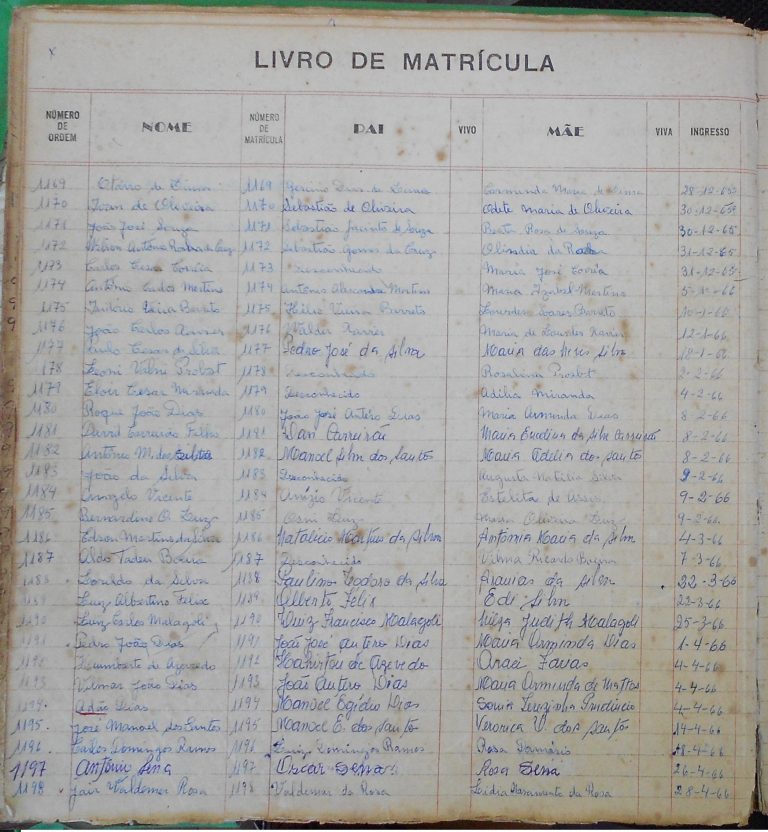 LIVRO DE MATRÍCULA
NÚMERO DE ORDEM NOME NÚMERO DE MATRÍCULA PAI VIVO MÃE VIVA INGRESSO
1169 1169 Dias de Maria de 28-12-65
1170 Ivan de Oliveira 1170 Sebastião de Oliveira Odete Maria de Oliveira 30-12-65
1171 João José Souza 1171 Sebastião de Souza Rosa de Souza 30-12-65
1172 Antônio da Cruz 1172 Sebastião Gomes da Cruz da 31-12-65
1173 Carlos Cesar Corrêa 1173 Desconhecido Maria José Corrêa 31-12-65
1174 Antônio Carlos Martins 1174 Antonio Alexandre Martins Maria Izabel Martins 5-1-66
1175 Vieira Barreto 1175 Hélio Vieira Barreto Lourdes Soares Barreto 10-1-66
1176 João Carlos Xavier 1176 Walder Xavier Maria de Lourdes Xavier 12-1-66
1177 Paulo Cesar da Silva 1177 Pedro José da Silva Maria das Silva 18-1-66
1178 Leoni Valmi Probst 1178 Desconhecido Rosalina Probst 2-2-66
1179 Eloir Cesar Miranda 1179 Desconhecido Adilia Miranda 4-2-66
1180 Roque João Dias 1180 João José Antero Dias Maria Arminda Dias 8-2-66
1181 David Carreirão Filho 1181 Carreirão Maria da Silva Carreirão 8-2-66
1182 Antônio M. dos Santos 1182 Manoel Silva dos Santos Maria Adelia dos Santos 8-2-66
1183 João da Silva 1183 Desconhecido Augusta Natilia Silva 9-2-66
1184 Vicente 1184 Anízio Vicente Estelita de Assis 9-2-66
1185 Bernardino O. Luz 1185 Osni Luz Maria Oliveira Luz 9-2-66
1186 Edson Martins da Silva 1186 Natalicio Martins da Silva Antonia Maria da Silva 4-3-66
1187 Aldo Tadeu Boeira 1187 Desconhecido Vilma Ricardo Boeira 7-3-66
1188 da Silva 1188 Paulino Teodoro da Silva da Silva 22-3-66
1189 Luiz Albertino Felix 1189 Alberto Felix Edi Silva 22-3-66
1190 Luiz Carlos Malagoli 1190 Luiz Francisco Malagoli Judith Malagoli 25-3-66
1191 Pedro João Dias 1191 João José Antero Dias Maria Arminda Dias 1-4-66
1192 Humberto de Azevedo 1192 Hamilton de Azevedo Araci Farias 4-4-66
1193 Vilmar João Dias 1193 João Antero Dias Maria Arminda de Mattos 4-4-66
1194 Adão Dias 1194 Manoel Egidio Dias Sonia Terezinha Prudêncio 4-4-66
1195 José Manoel dos Santos 1195 Manoel E. dos Santos Veronica V. dos Santos 14-4-66
1196 Carlos Domingos Ramos 1196 Luiz Domingos Ramos Rosa Januário 18-4-66
1197 Antonio Sena 1197 Oscar Sena Rosa Sena 26-4-66
1198 Jair Valdemar Rosa 1198 Valdemar da Rosa Lidia da Rosa 28-4-66